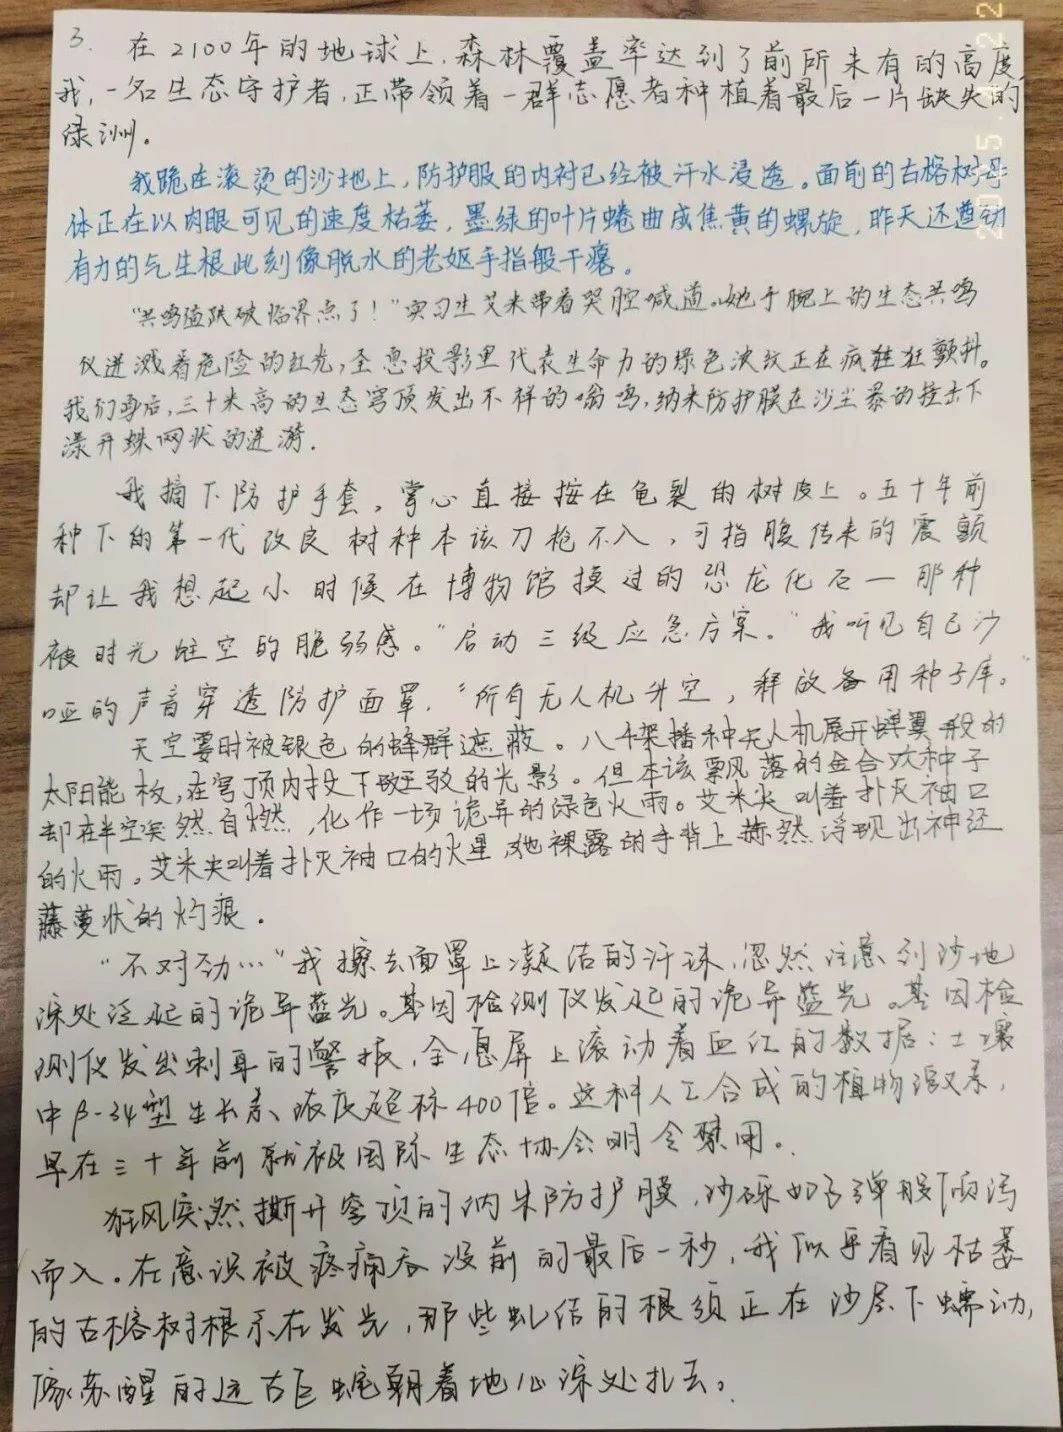 3. 在2100年的地球上,森林覆盖率达到了前所未有的高度
我,一名生态守护者,正带领着一群志愿者种植着最后一片缺失的
绿洲。
我跪在滚烫的沙地上,防护服的内衬已经被汗水浸透。面前的古榕树母
体正在以肉眼可见的速度枯萎,墨绿的叶片蜷曲成焦黄的螺旋,昨天还遒劲
有力的气生根此刻像脱水的老妪手指般干瘪。
“共鸣值跌破临界点了!”实习生艾米带着哭腔喊道。她手腕上的生态共鸣
仪迸溅着危险的红光,全息投影里代表生命力的绿色波纹正在疯狂狂颤抖。
我们身后,三十米高的生态穹顶发出不祥的嗡鸣,纳米防护膜在沙尘暴的撞击下
漾开蛛网状的涟漪.
我摘下防护手套,掌心直接按在龟裂的树皮上。五十年前
种下的第一代改良树种本该刀枪不入,可指腹传来的震颤
却让我想起小时候在博物馆摸过的恐龙化石—那种
被时光蛀空的脆弱感。“启动三级应急方案。”我听见自己沙
哑的声音穿透防护面罩,“所有无人机升空,释放备用种子库。”
天空霎时被银色的蜂群遮蔽。八千架播种无人机展开蝉翼般的
太阳能板,在穹顶内投下斑驳的光影。但本该飘落的金合欢种子
却在半空突然自燃,化作一场诡异的绿色火雨。艾米尖叫着扑灭袖口
的火雨。艾米尖叫着扑灭袖口的火星,她裸露的手背上赫然浮现出神经
藤蔓状的灼痕.
“不对劲…”我擦去面罩上凝结的汗珠,忽然注意到沙地
深处泛起的诡异蓝光。基因检测仪发起的诡异蓝光。基因检
测仪发出刺耳的警报,全息屏上滚动着血红的数据:土壤
中β-34型生长素浓度超标400倍。这种人工合成的植物激素,
早在三十年前就被国际生态协会明令禁用。
狂风突然撕开穹顶的纳米防护膜,沙砾如子弹般倾泻
而入。在意识被疼痛吞没前的最后一秒,我似乎看见枯萎
的古榕树根系在发光,那些虬结的根须正在沙层下蠕动,
像苏醒的远古巨蛇朝着地心深处扎去。